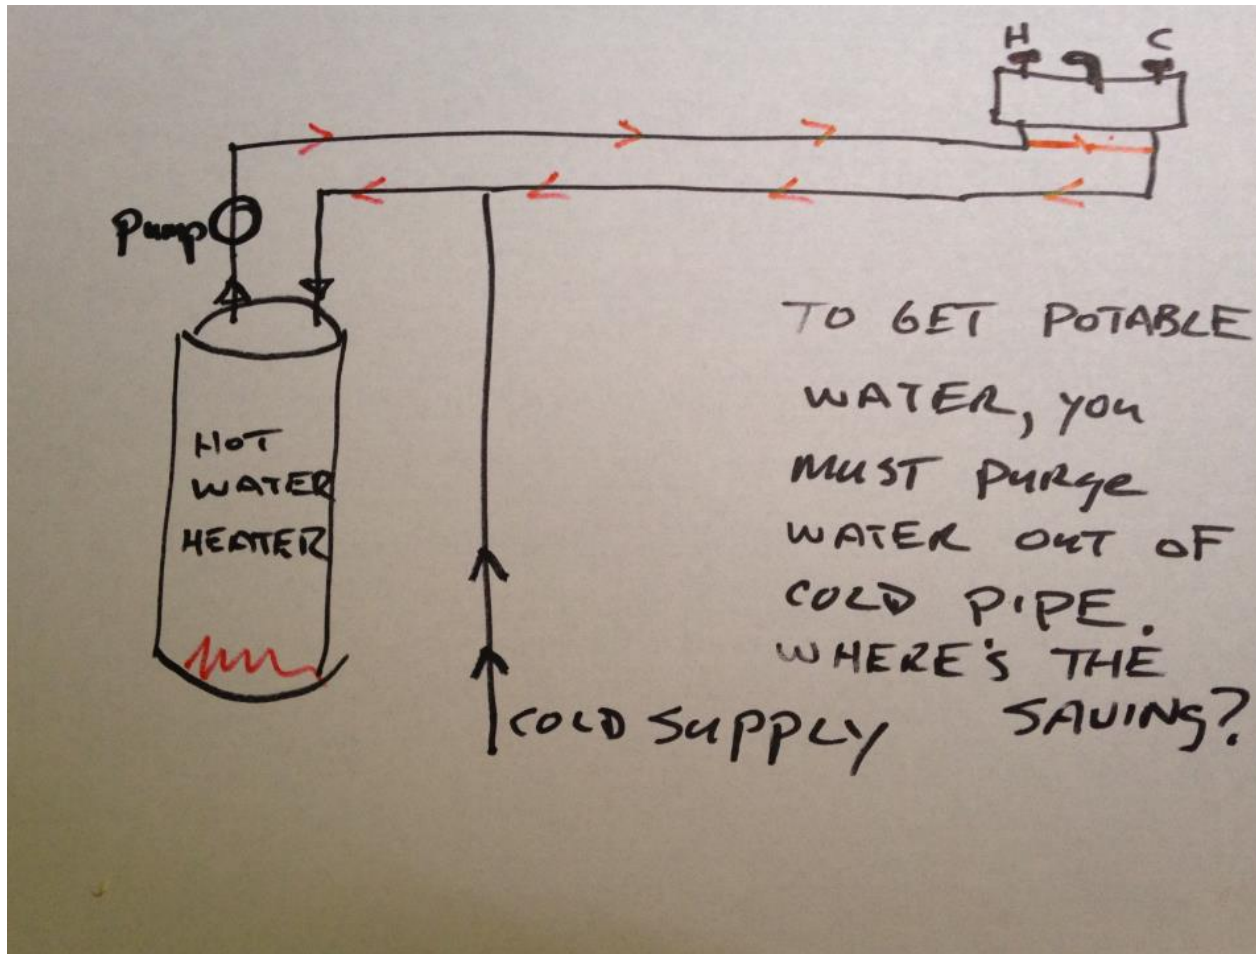 H C
Pump
HOT
WATER
HEATER
COLD SUPPLY
TO GET POTABLE
WATER, you
MUST Purge
WATER OUT OF
COLD PIPE.
WHERE'S THE
SAVING?